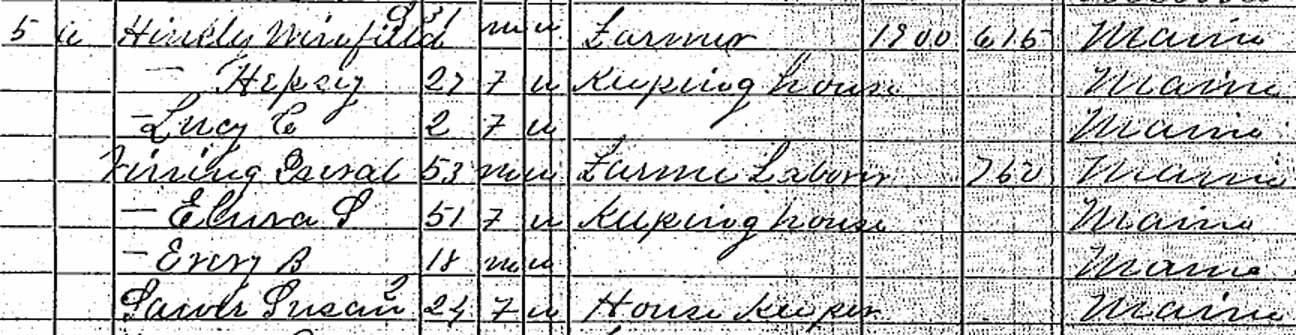 5 Hinkly Winifield S 31 m w Farmer 1900 615 Maine
— Hepsey 27 F w Keeping house Maine
— Lucy E 2 F w Maine
53 m w Farme Laborer 760 Maine
— Elvira S 51 F w Keeping house Maine
— Evry B 18 m w Maine
Susan 24 F w House Keeper Maine